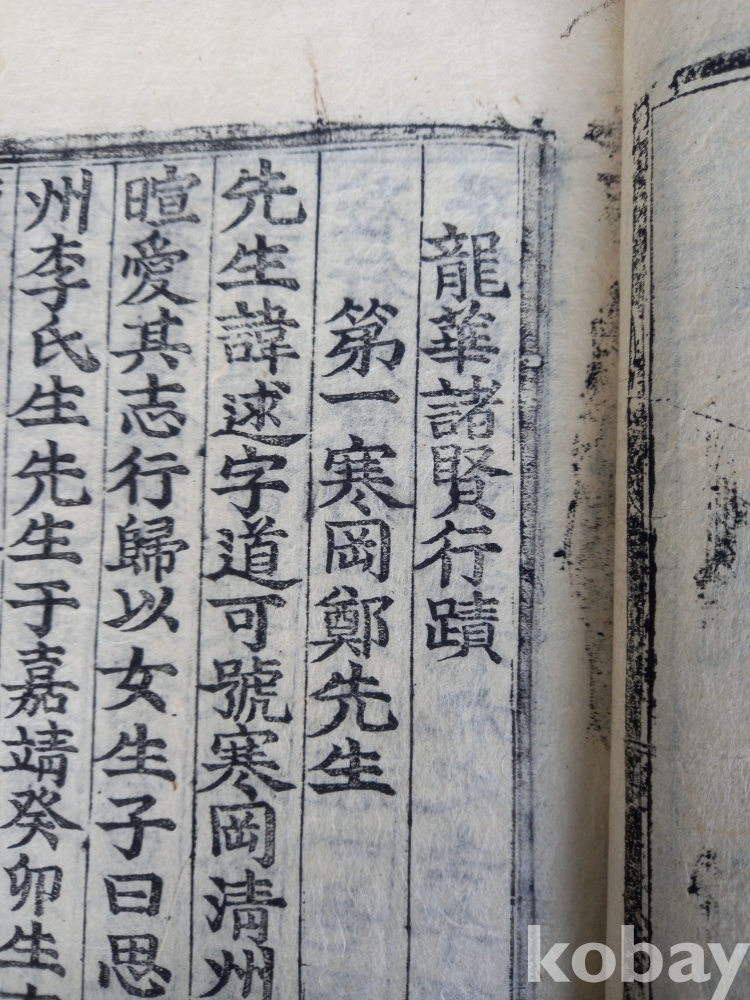 龍華諸賢行蹟
第一寒岡鄭先生
先生諱逑字道可號寒岡清州
暄愛其志行歸以女生子曰思
州李氏生先生于嘉靖癸卯生
kobay